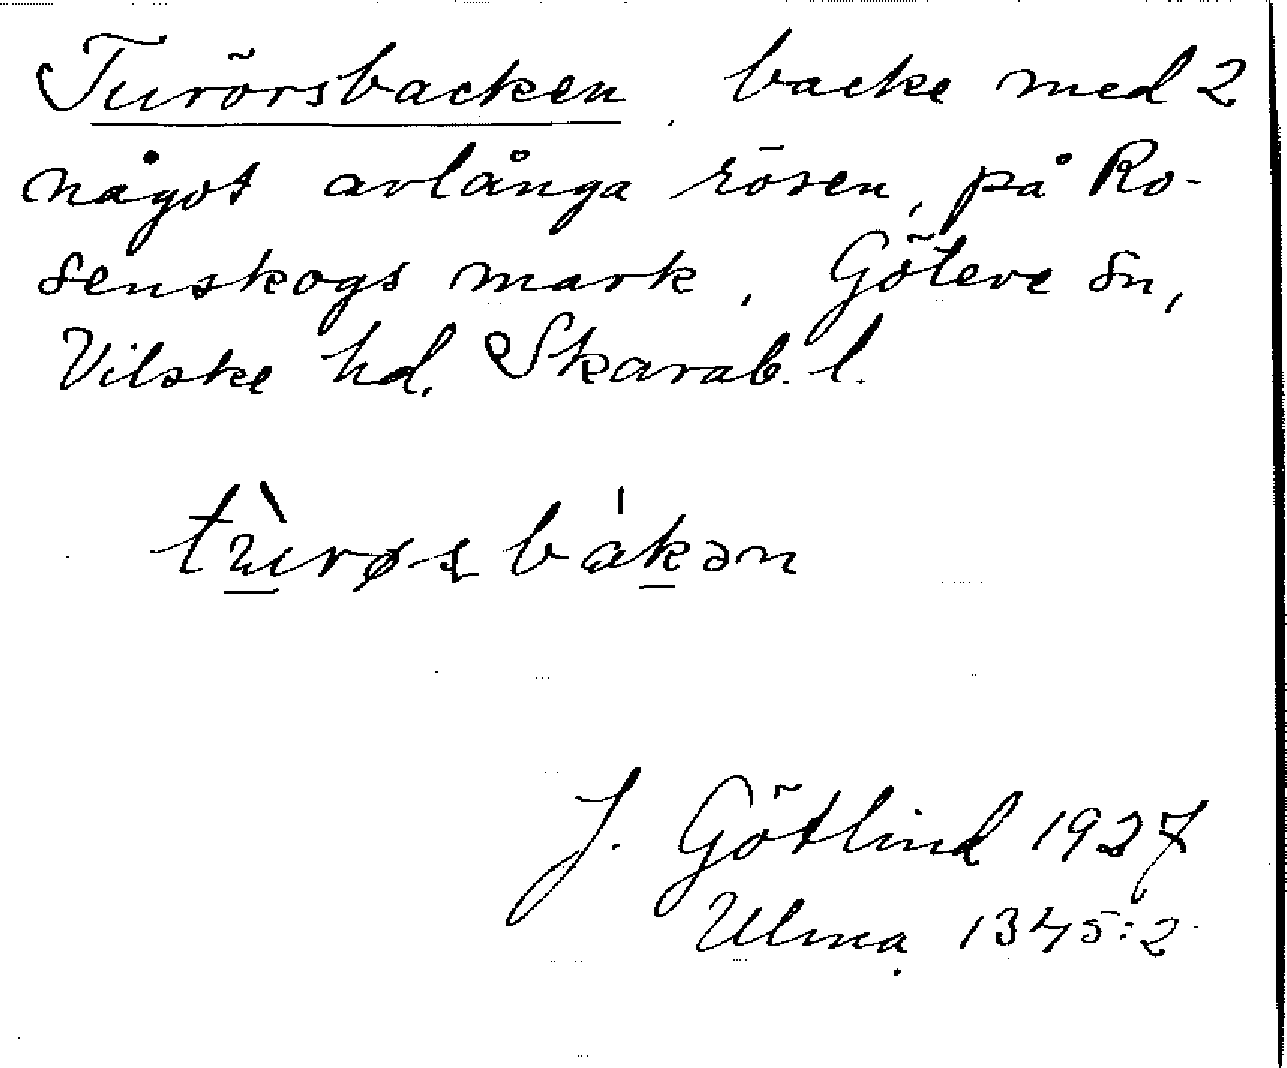 Turörsbacken, backe med 2
något avlånga rösen, på Ro-
senskogs mark, Göteve sn,
Vilske hd, Skarab. l.
tùrøsbákən
J. Götlind 1927
Ulma 1345:2